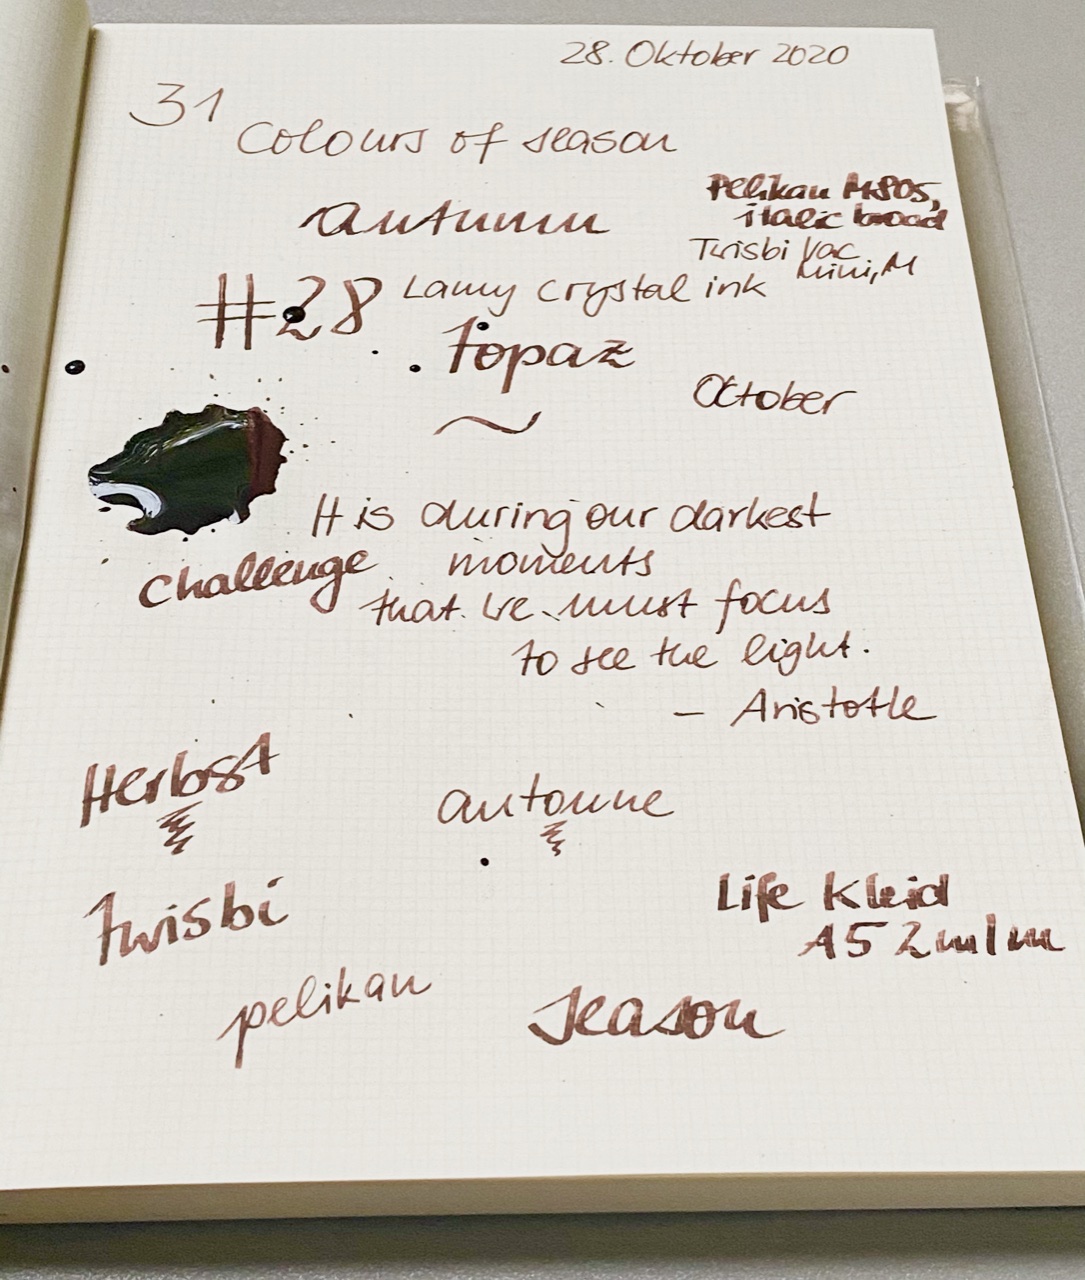 28. Oktober 2020
31
Colours of season
autumn
Pelikan M805,
italic broad
Twisbi Vac
Mini, M
#28 Lamy crystal ink
topaz
October
It is during our darkest
challenge
moments
that we must focus
to see the light.
– Aristotle
Herbst
automne
Twisbi
Life Kleid
A5 2mm
pelikan
season